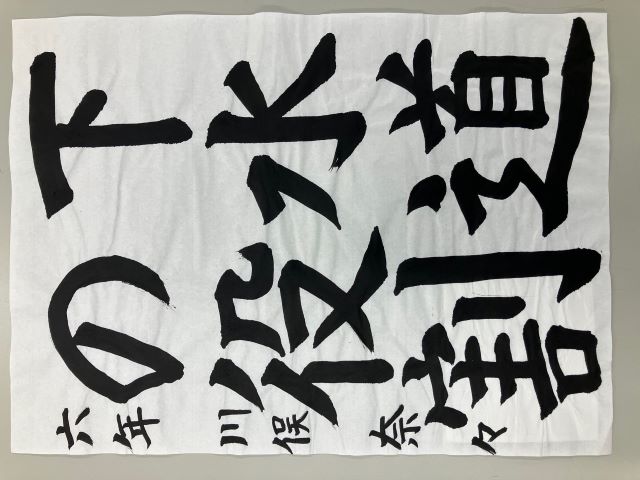 下水道
の役割
六年 川俣 奈々